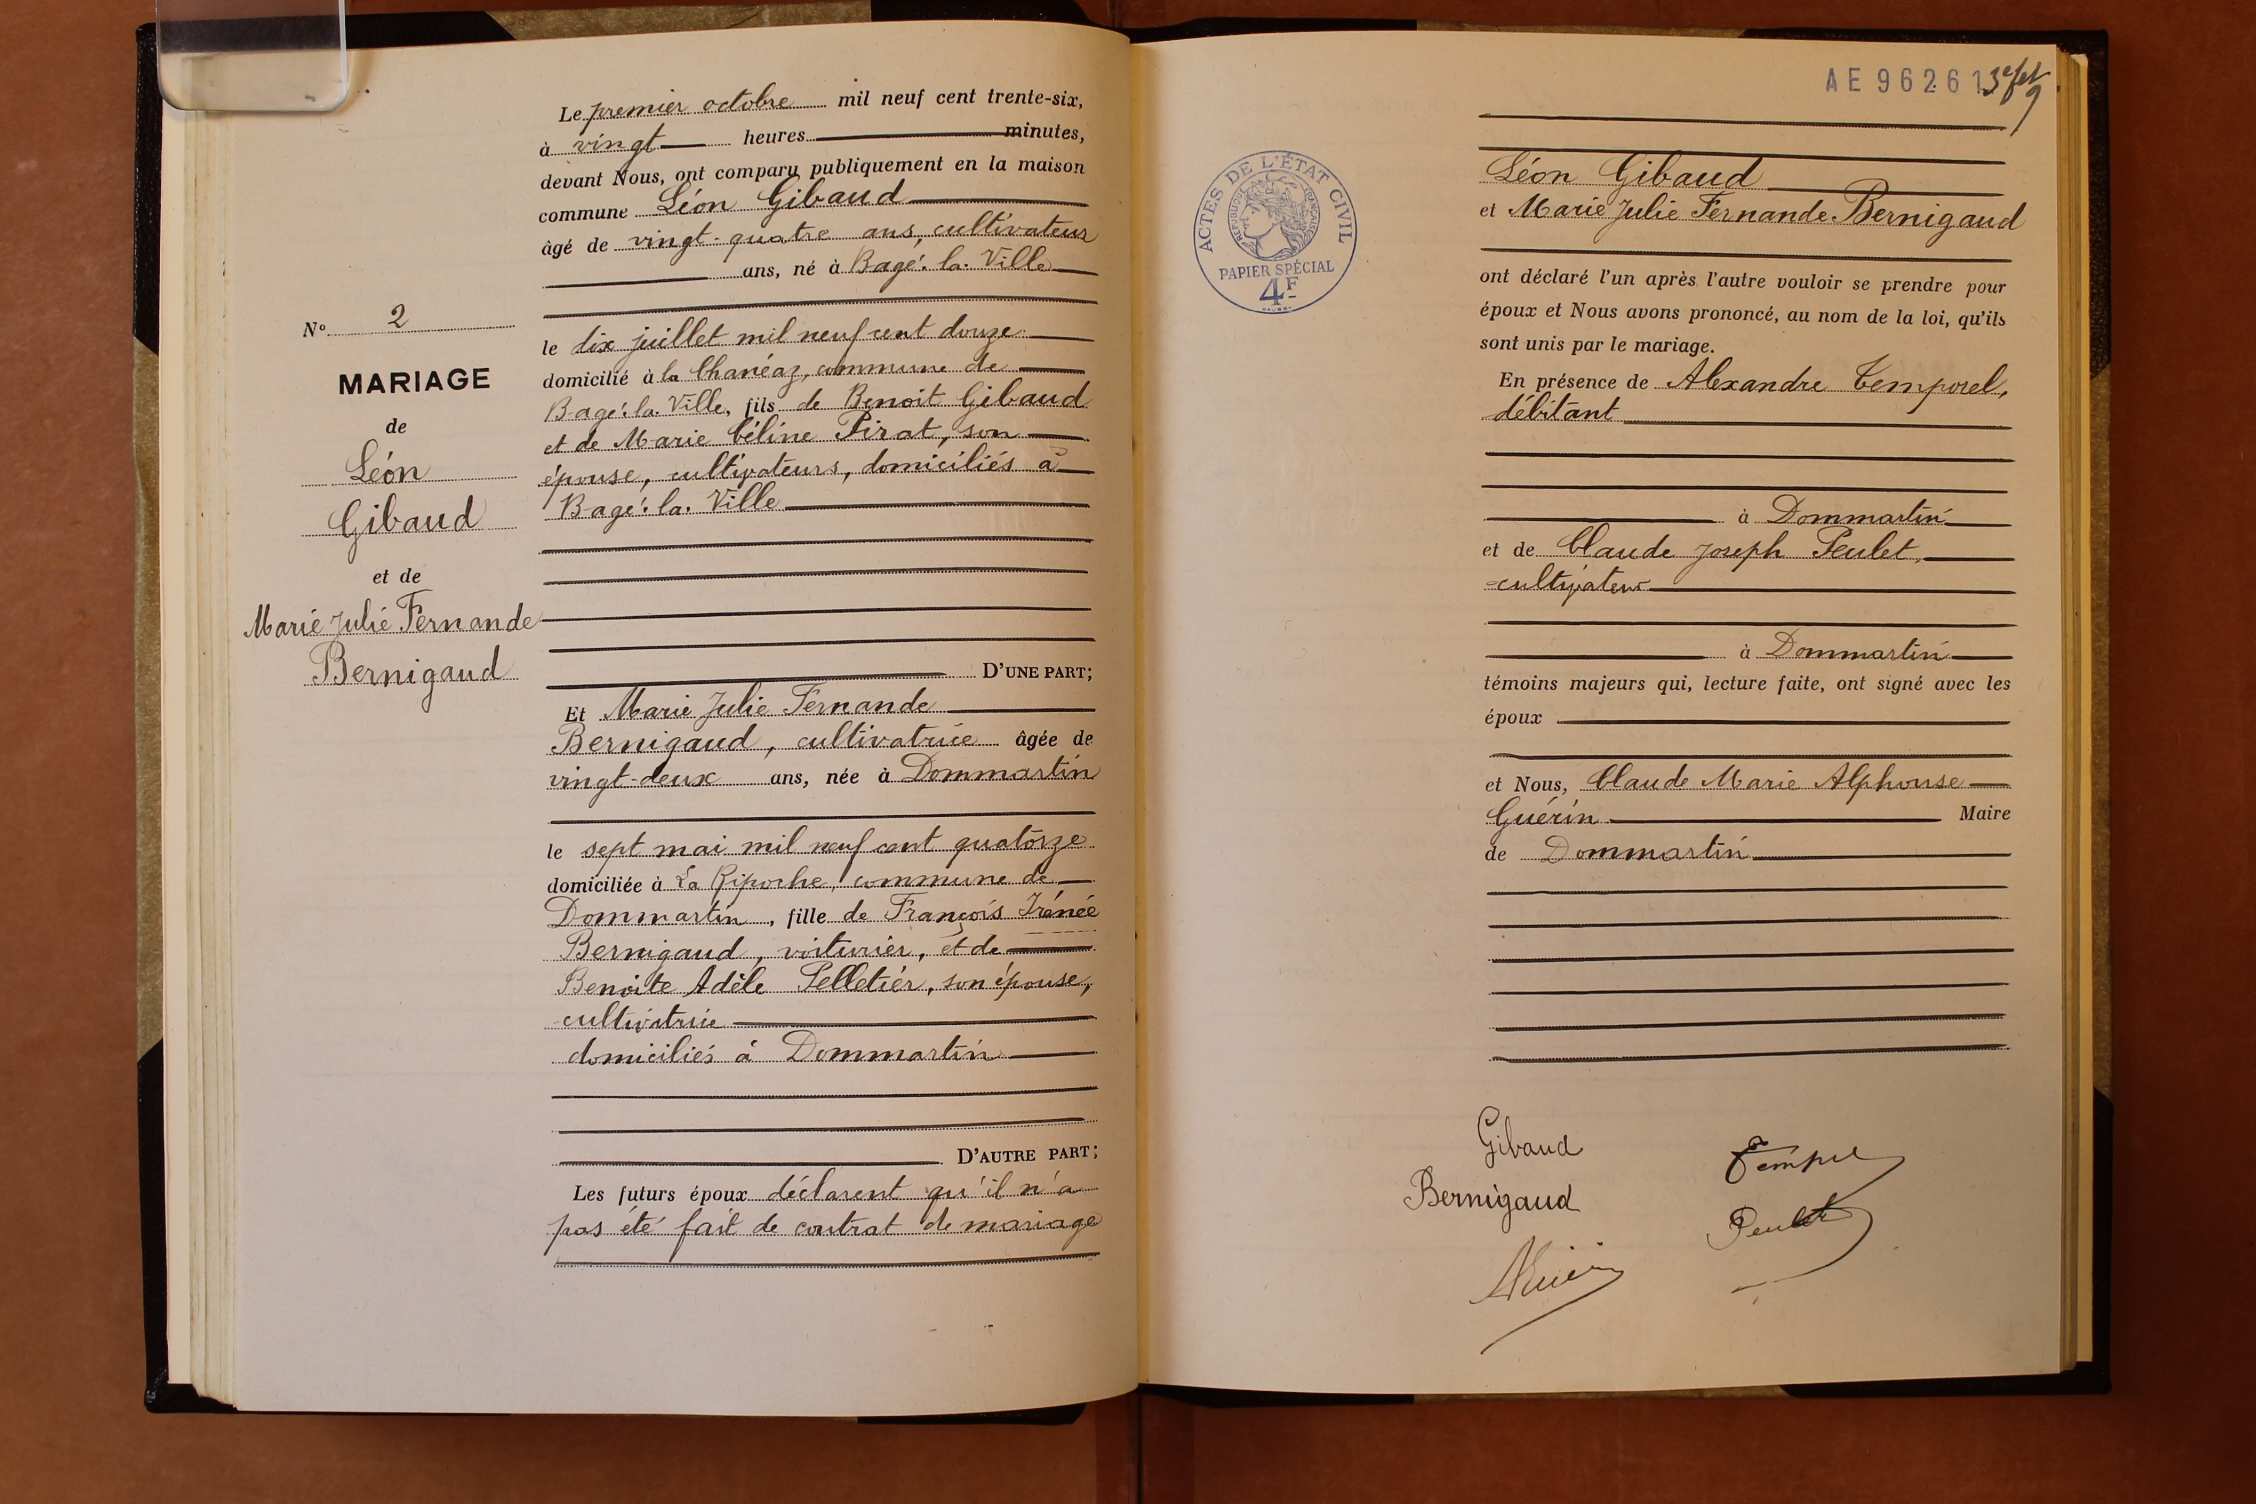 Le premier octobre mil neuf cent trente-six,
à vingt heures minutes,
devant Nous, ont comparu publiquement en la maison
commune Léon Gibaud
âgé de vingt-quatre ans, cultivateur
ans, né à Bagé-la-Ville
le dix juillet mil neuf cent douze
domicilié à la Chanéaz, commune de
Bagé-la-Ville, fils de Benoit Gibaud
et de Marie Céline Pirat, son
épouse, cultivateurs, domiciliés à
Bagé-la-Ville
D'UNE PART;
Nº 2
MARIAGE
de
Léon
Gibaud
et de
Marie Julie Fernande
Bernigaud
Et Marie Julie Fernande
Bernigaud, cultivatrice âgée de
vingt-deux ans, née à Dommartin
le sept mai mil neuf cent quatorze
domiciliée à La Ripoche, commune de
Dommartin, fille de François Irénée
Bernigaud, voiturier, et de
Benoite Adèle Pelletier, son épouse,
cultivatrice
domiciliés à Dommartin
D'AUTRE PART;
Les futurs époux déclarent qu'il n'a
pas été fait de contrat de mariage
AE 96261
ACTES DE L'ÉTAT CIVIL
RÉPUBLIQUE FRANÇAISE
PAPIER SPÉCIAL
4F
Léon Gibaud
et Marie Julie Fernande Bernigaud
ont déclaré l'un après l'autre vouloir se prendre pour
époux et Nous avons prononcé, au nom de la loi, qu'ils
sont unis par le mariage.
En présence de Alexandre Temporel,
débitant
à Dommartin
et de Claude Joseph Peulet,
cultivateur
à Dommartin
témoins majeurs qui, lecture faite, ont signé avec les
époux
et Nous, Claude Marie Alphonse
Guérin Maire
de Dommartin
Gibaud
Bernigaud
Peulet